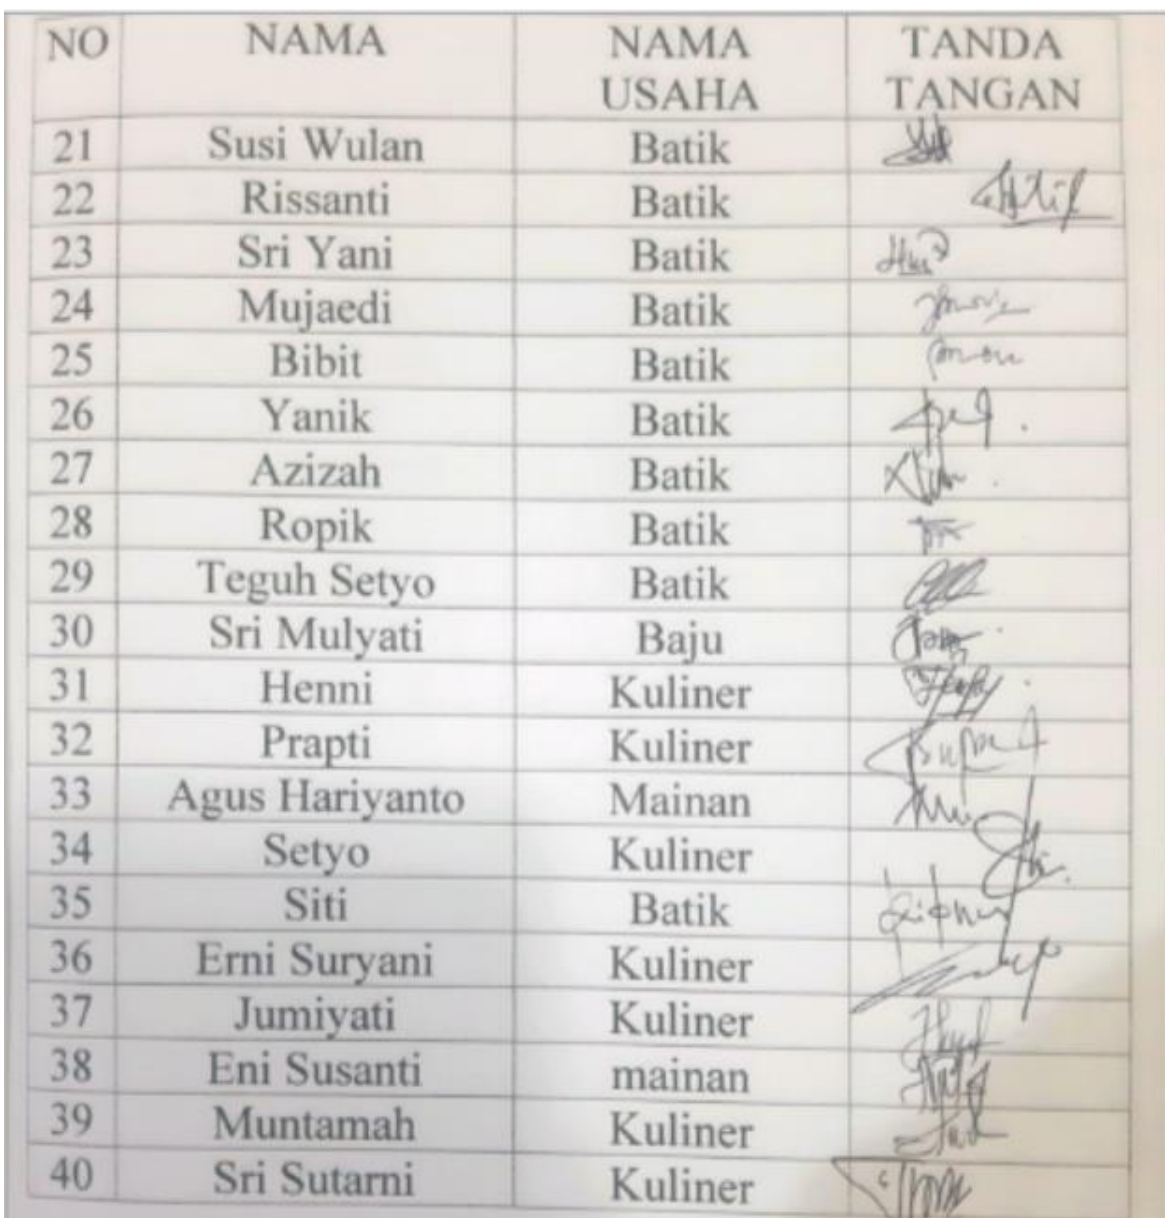 NO NAMA NAMA USAHA TANDA TANGAN
21 Susi Wulan Batik
22 Rissanti Batik
23 Sri Yani Batik
24 Mujaedi Batik
25 Bibit Batik
26 Yanik Batik
27 Azizah Batik
28 Ropik Batik
29 Teguh Setyo Batik
30 Sri Mulyati Baju
31 Henni Kuliner
32 Prapti Kuliner
33 Agus Hariyanto Mainan
34 Setyo Kuliner
35 Siti Batik
36 Erni Suryani Kuliner
37 Jumiyati Kuliner
38 Eni Susanti mainan
39 Muntamah Kuliner
40 Sri Sutarni Kuliner